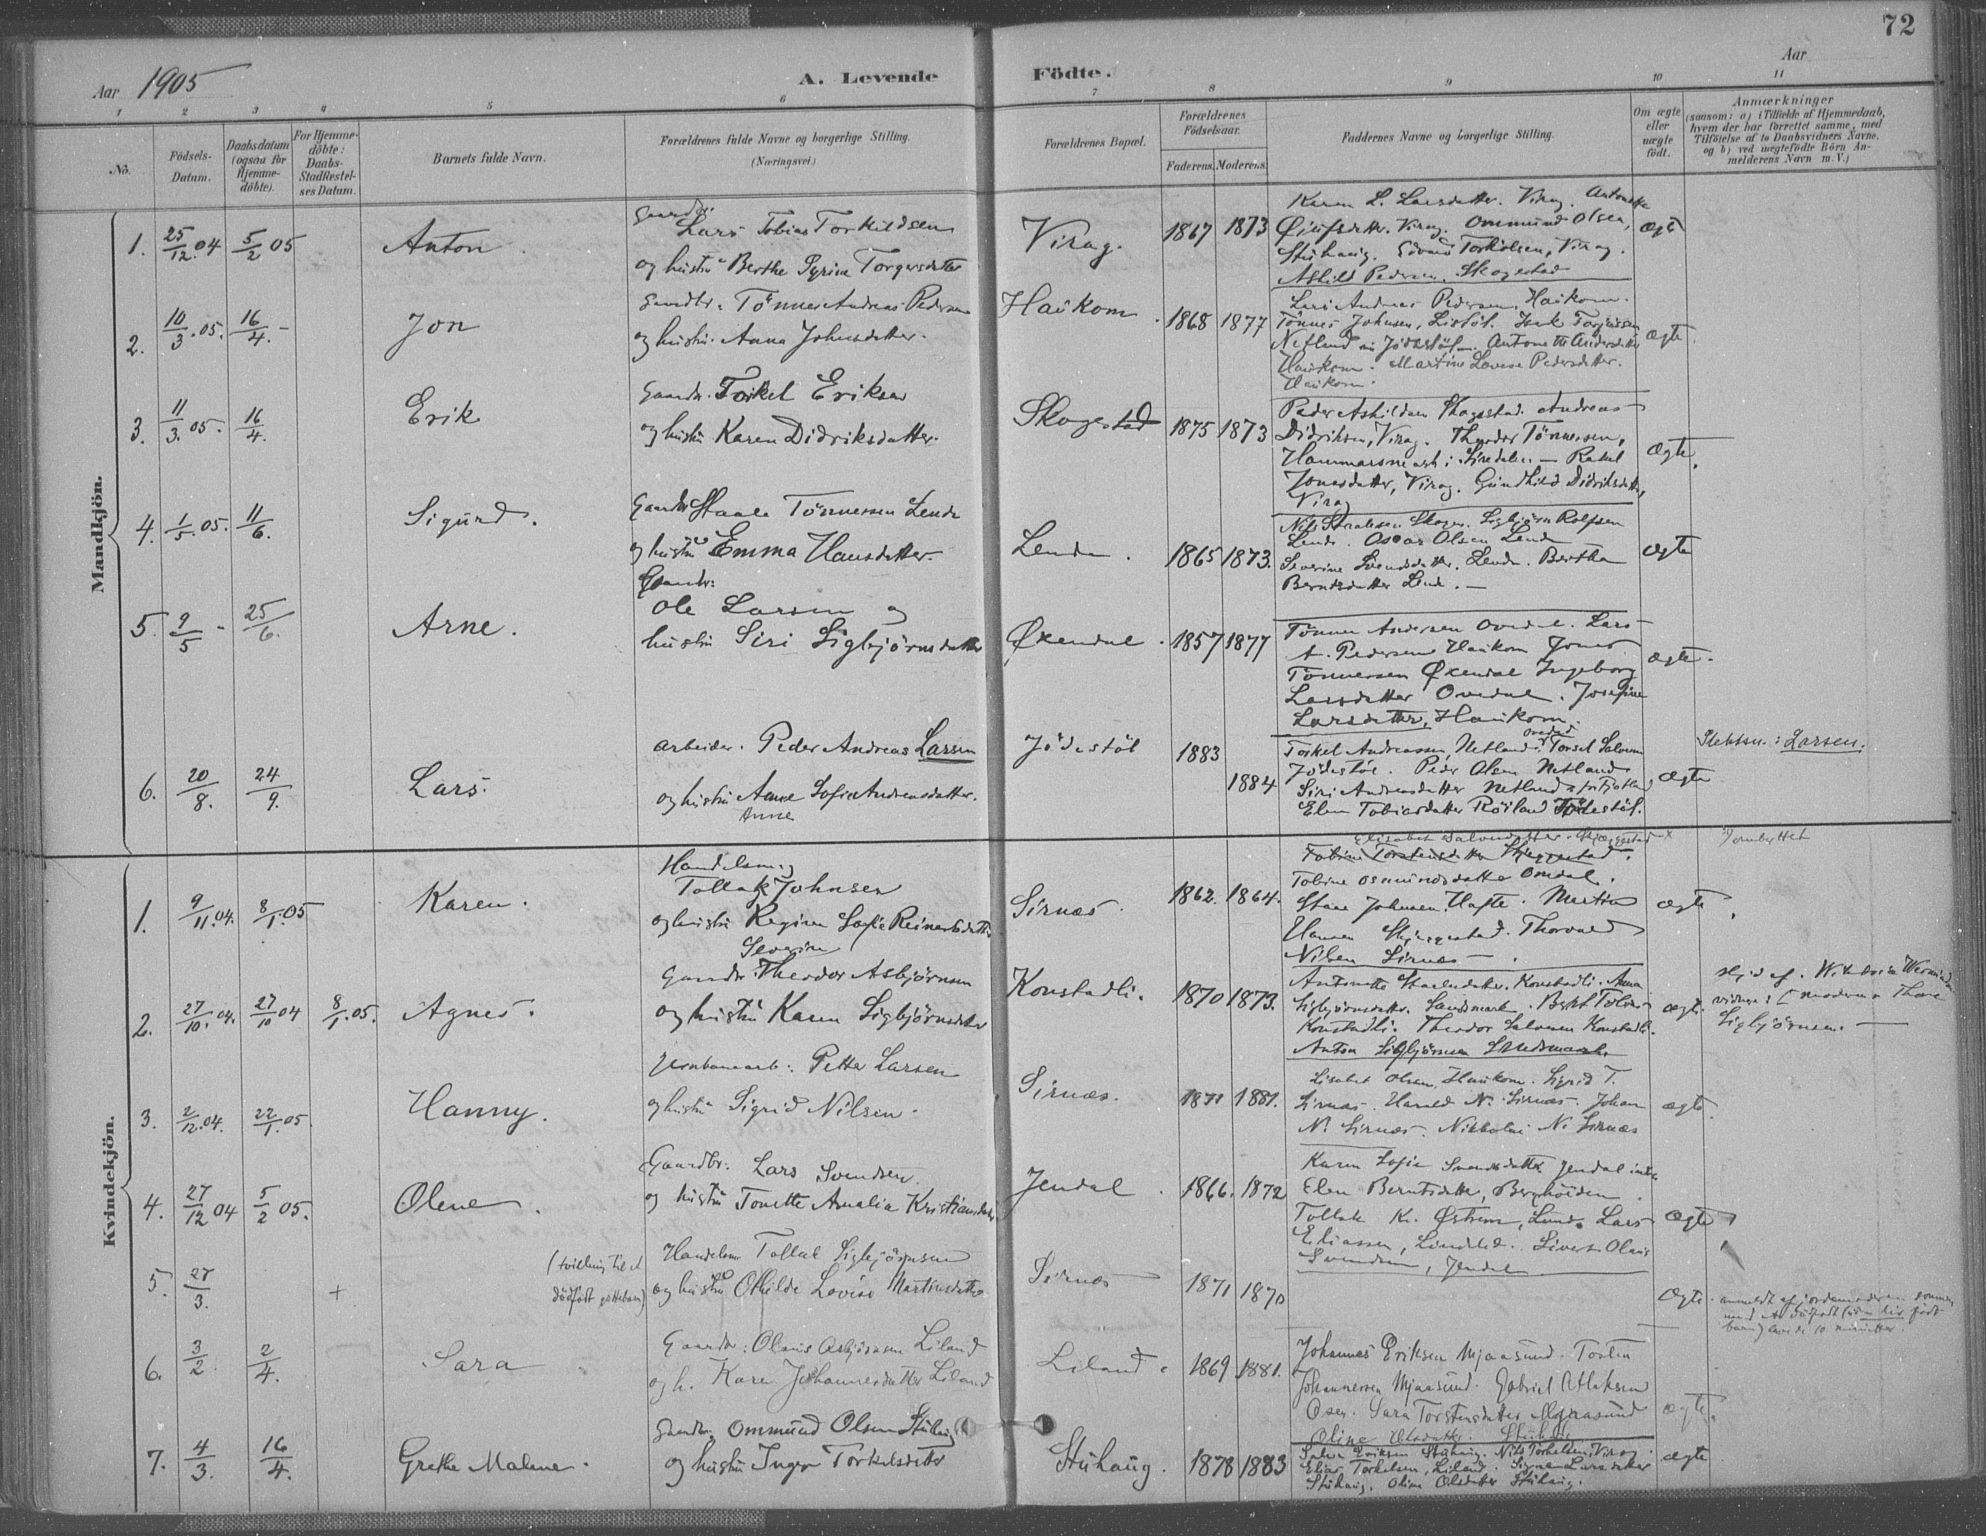 72
Aar 1905 A. Levende Födte. Aar
1 2 3 4 5 6 7 8 9 10 11
No.
Födsels-Datum.
Daabsdatum (ogsaa for Hjemme-döbte).
For Hjemme-döbte: Daabs-Stadfestel-ses Datum.
Barnets fulde Navn.
Forældrenes fulde Navne og borgerlige Stilling. (Næringsvei.)
Forældrenes Bopæl.
Forældrenes Födselsaar.
Faderens. Moderens.
Faddernes Navne og borgerlige Stilling.
Om ægte eller uægte födt.
Anmærkninger
(saasom: a) i Tilfælde af Hjemmedaab, hvem der har forrettet samme, med Tilföielse af to Daabsvidners Navne, og b) ved uægtefödte Börn An-melderens Navn m. V.)
Mandkjön.
1. 25/12 04 5/2 05 Anton
Gaardbr. Lars Tobias Torkildsen
og hustru Berthe Syrine Torgersdatter
Virag. 1867 1873
Karen L. Larsdatter. Virag. Antonette
Virag. Ommund Olsen,
Stuhaug. Edvard Torkelsen, Virag.
Ashild Pedersen, Skogestad
Ægte
2. 10/3 05. 16/4 - Jon
Gaardbr. Tönnes Andreas Pedersen
og hustru. Anna Johnsdatter.
Haukom. 1868 1877
Lars Andreas Pedersen, Haukom.
Tönnes Johnsen, Listöl. Isak Torjussen
Netland Jödestöl. Antonette Andersdatter
Haukom. Martine Lovise Pedersdatter.
Haukom.
Ægte.
3. 11/3. 05. 16/4. Erik
Gaardbr. Torkel Eriksen
og hustru Karen Didriksdatter.
Skogestad 1875 1873
Peder Ashildsen Skogestad. Andreas
Didriksen, Virag. Theodor Tönnesen,
i Siredalen - Rakel
Jonasdatter, Virag. Gunhild Didriksdatter,
Virag
Ægte.
4. 1/5 05. 11/6. Sigurd.
Gaardbr. Staale Tönnessen Lende
og hustru Emma Hansdatter.
Lende. 1865 1873.
Skogen. Sigbjörn Rolfsen
Lende. Oscar Olsen Lende
Severine Svendsdatter. Lende. Bertha
Berntsdatter Lende. -
Ægte
5. 9/5 - 25/6. Arne.
Gaardbr:
Ole Larsen og
hustru Siri Sigbjörnsdatter
Øxendal. 1857 1877
Tönnes Andersen Ovedal. Lars
A. Pedersen Haukom Jonas
Tönnessen Øxendal Ingeborg
Larsdatter Ovedal. Josefine
Larsdatter, Haukom.
Ægte.
6. 20/8. 24/9. Lars.
Arbeider. Peder Andreas Larsen
og hustru Anne Sofie Andreasdatter.
Anne
Jödestöl 1883 1884
Torkel Andreassen, Netland. Torsel Salvesen
Jödestöl. Peder Olsen Netland
Siri Andreasdatter Netland
Elen Tobiasdatter Röiland Jödestöl.
Ægte
Slektsn.: Larsen.
Kvindekjön.
1. 9/11 04. 8/1 05 Karen.
Handelsm.
Tollak Johnsen
og hustru Regine Sofie Reinertsdatter
Severine
Sirnæs. 1862. 1864.
Elisabet Salvesdatter. Skjæggestad x
Tobine Torstensdatter Skjeggestad.
Tobine Osmundsdatter Omdal.
Johnsen, Hafte. Martin
Hansen Skjæggestad. Thorvald
Nilsen Sirnæs - .
Ægte.
x) ombyttet
2. 27/10. 04. 27/10 04 8/1. 05. Agnes.
Gaardbr. Theodor Asbjörnsen
og hustru Karen Sigbjörnsdatter
Konstadli. 1870 1873.
Antonette Konstadli. Anna
Sigbjörnsdatter. Sandsmark.
Konstadli. Theodor Salvesen Konstadli.
Anton Sigbjörnsen Sandsmark.
Ægte.
vidner: moderen & Thore
Sigbjörnsen. -
3. 2/12 04. 22/1. 05. Hanny.
Jernbanearb: Petter Larsen
og hustru Sigrid Nilsen.
Sirnæs. 1871 1881.
Lisabet Olsen, Haukom. Sigrid T.
Sirnæs. Harald N. Sirnæs. Johan
N. Sirnæs. Nikolai N. Sirnæs
Ægte.
4. 27/12 04 5/2 05. Olene.
Gaardbr: Lars Svendsen.
og hustru Tonette Amalia Kristiansdatter
Jendal. 1866. 1872
Karen Sofie Svendsdatter Jendal
Elen Berntsdatter,
Tollak Kr. Østrem, Lunde. Lars
Eliassen,
Svendsen, Jendal
Ægte
5. 27/3. +
(tvilling til et
dödfödt gutteban)
Handelsm Tollak Sigbjörnsen
og hustru Othilde Lovise Martinsdatter
Sirnæs 1871 1870
Ægte.
anmeldt af jordemoderen
barn) levede 10 minutter.
6. 3/2. 2/4. Sara
Gaardbr: Olaus Asbjörnsen Liland
og h. Karen Johannesdatter Liland
Liland. 1869 1881.
Johannes Eriksen Mjaasund. Tosten
Johannessen Mjaasund. Gabriel Atlaksen
Osen. Sara Torstensdatter Mjaasund
Oline Olsdatter.
Ægte.
7. 4/3. 16/4. Grethe Malene.
Gaardbr. Ommund Olsen Stuhaug
og hustru Inger Torkelsdatter
Stuhaug. 1878 1883
Eriksen Stuhaug. Nils Torkelsen, Virag.
Elias Torkelsen, Liland. Signe Larsdatter
Stuhaug. Oline Olsdatter Stuhaug.
Ægte